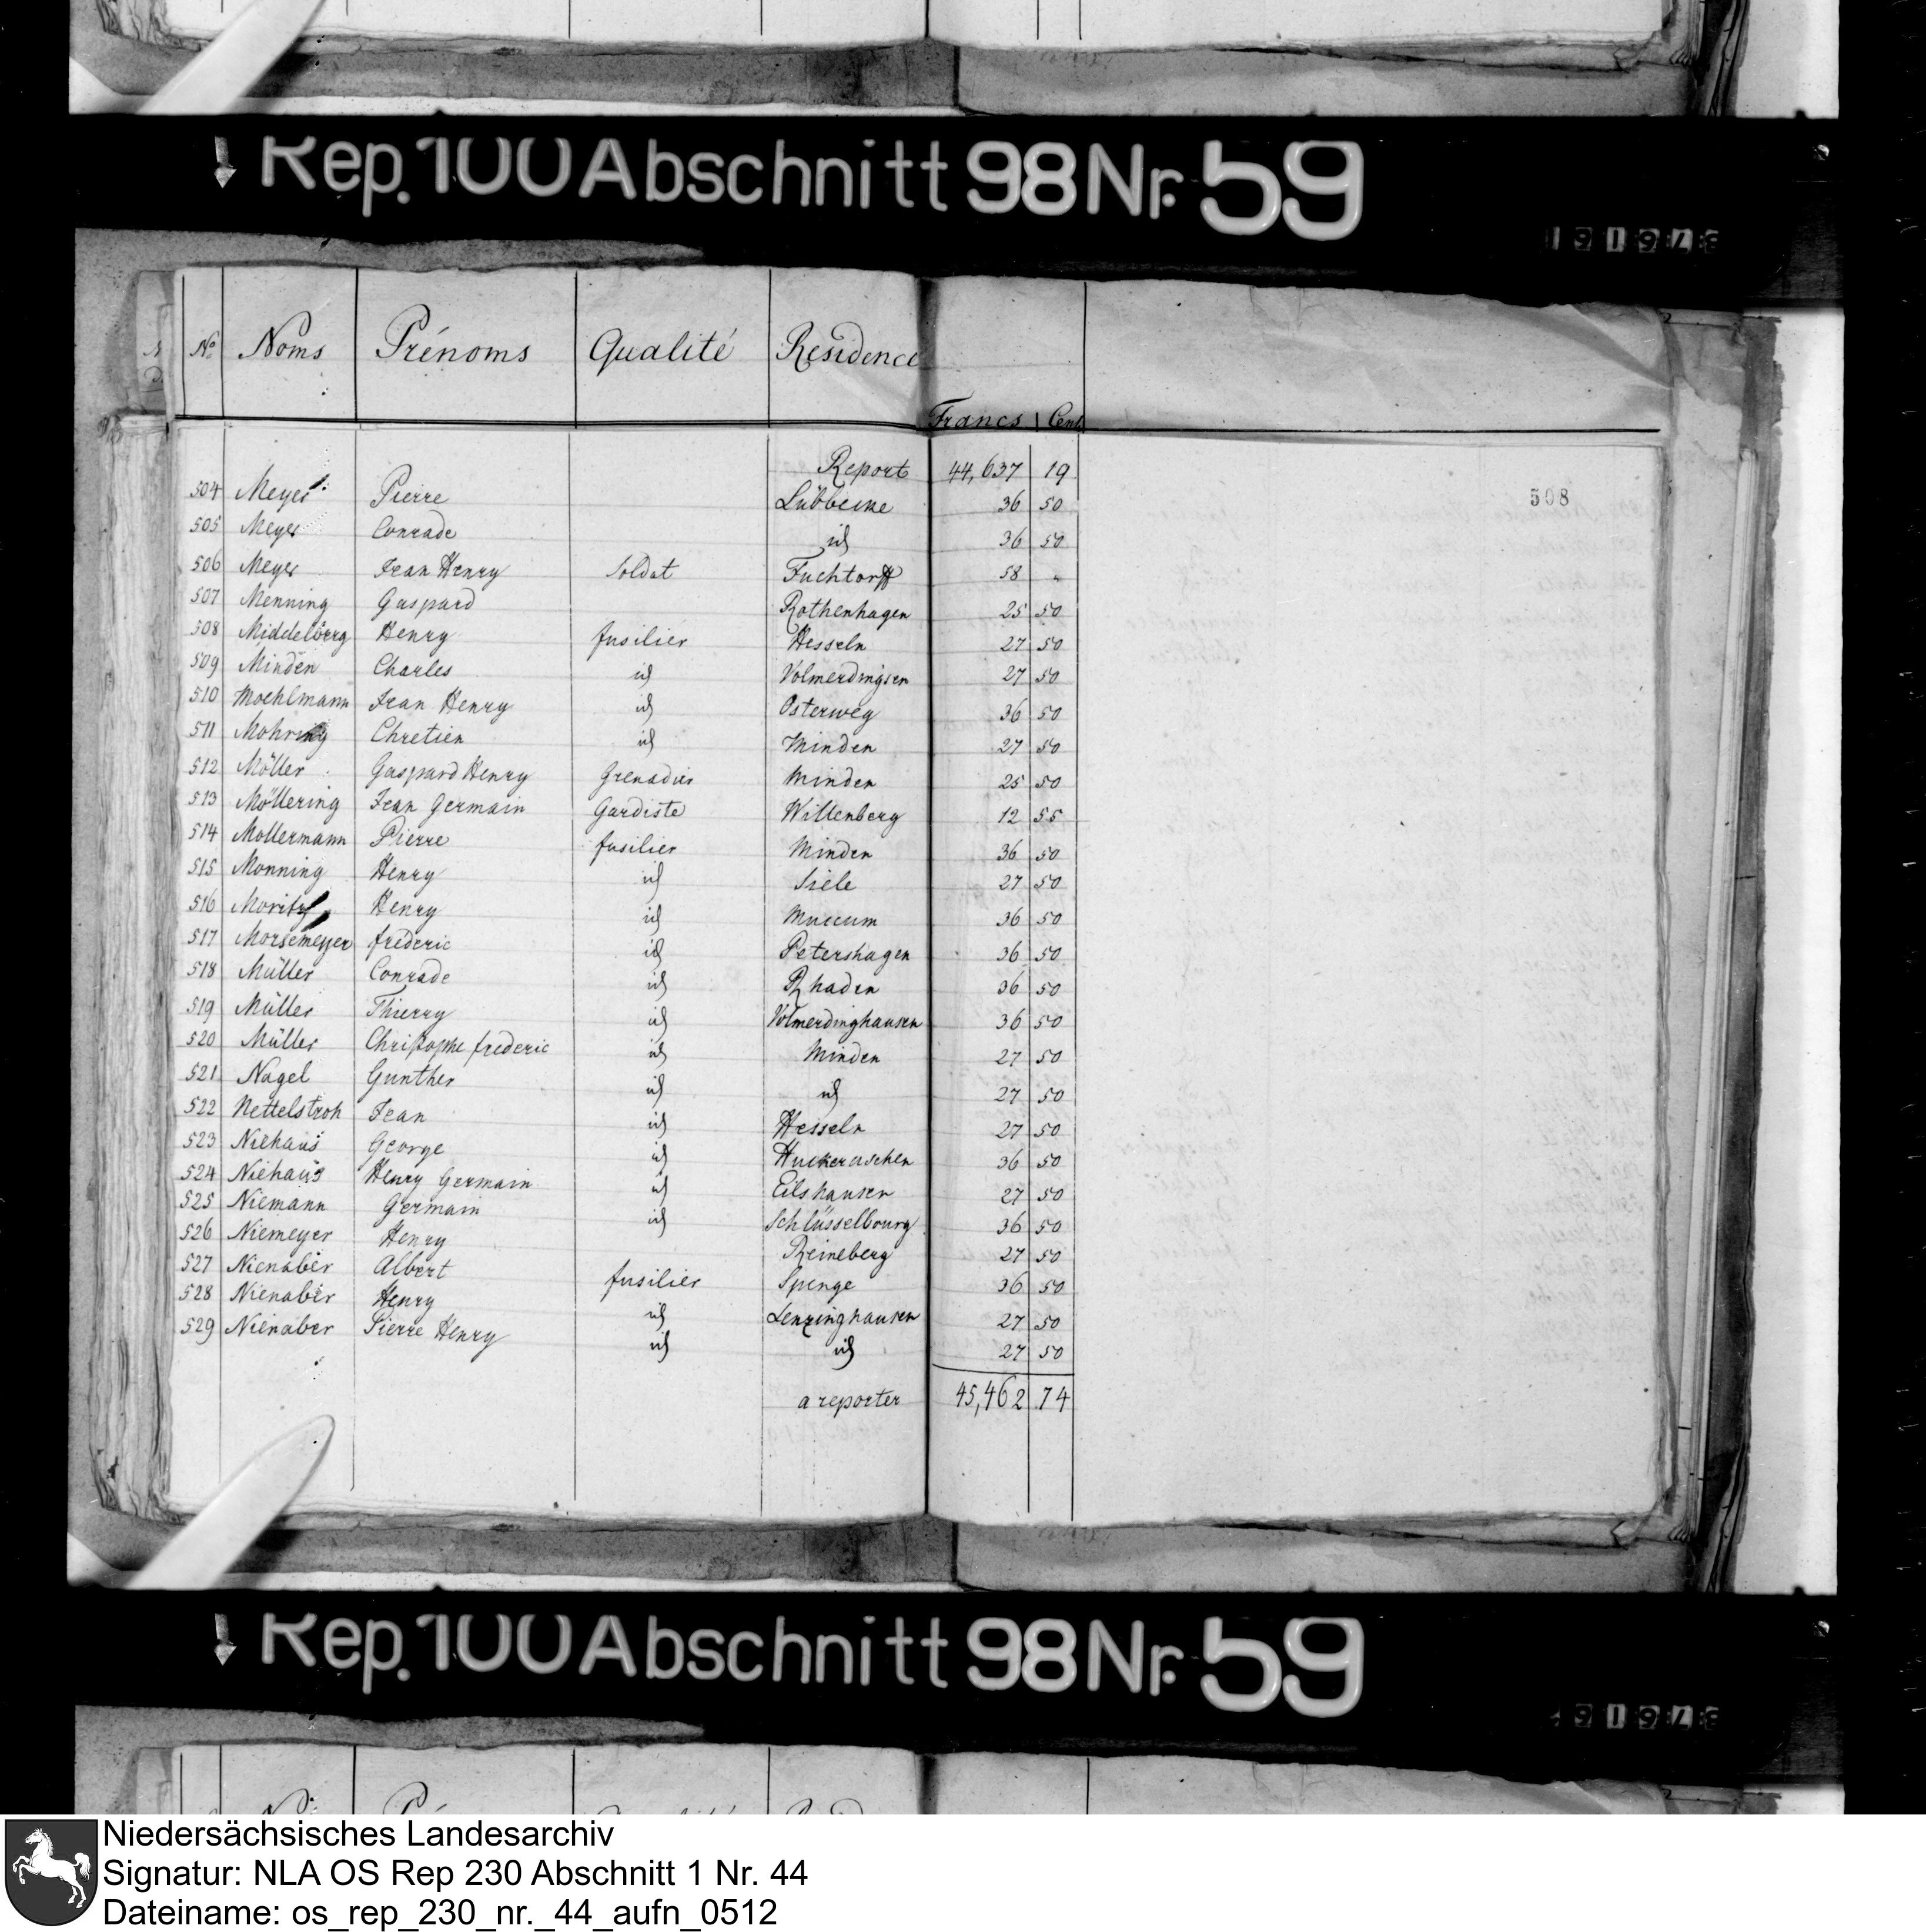 Rep. 100 Abschnitt 98 Nr. 59
No Noms Prénoms Qualité Residence
Francs Cent
Report 44,637 19
508
504 Meyer Pierre Lübbecke 36 50
505 Meyer Conrade id 36 50
506 Meyer Jean Henry Soldat Fuchtorff 58 "
507 Menning Gaspard Rothenhagen 25 50
508 Middelberg Henry fusilier Hesseln 27 50
509 Minden Charles id Volmerdingsen 27 50
510 Moehlmann Jean Henry id Osterweg 36 50
511 Mohring Chretien id Minden 27 50
512 Möller Gaspard Henry Grenadier Minden 25 50
513 Möllering Jean Germain Gardiste Wittenberg 12 55
514 Mollermann Pierre fusilier Minden 36 50
515 Monning Henry id Siele 27 50
516 Moritz Henry id Muccum 36 50
517 Morsemeyer frederic id Petershagen 36 50
518 Müller Conrade id Rhaden 36 50
519 Müller Thierry id Volmerdinghausen 36 50
520 Müller Christophe frederic id Minden 27 50
521 Nagel Gunther id id 27 50
522 Nettelstroh Jean id Hesseln 27 50
523 Niehaus George id 36 50
524 Niehaus Henry Germain id Eilshausen 27 50
525 Niemann Germain id Schlüsselbourg 36 50
526 Niemeyer Henry Reineberg 27 50
527 Nienaber Albert fusilier Spenge 36 50
528 Nienaber Henry id Lenzinghausen 27 50
529 Nienaber Pierre Henry id id 27 50
a reporter 45,462 74
Rep. 100 Abschnitt 98 Nr. 59
Niedersächsisches Landesarchiv
Signatur: NLA OS Rep 230 Abschnitt 1 Nr. 44
Dateiname: os_rep_230_nr._44_aufn_0512